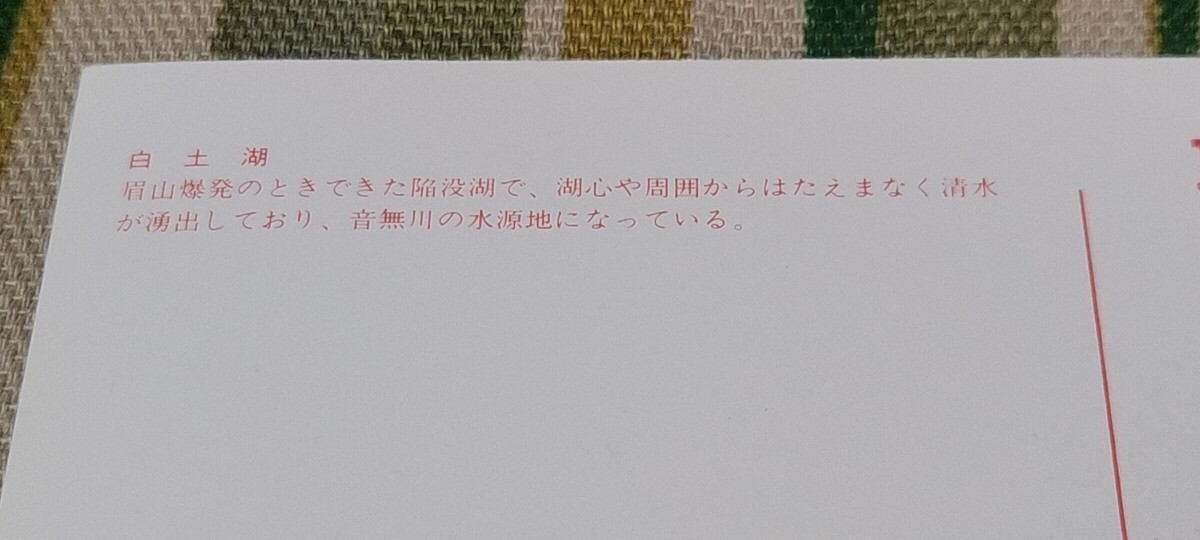 白土湖
眉山爆発のときできた陥没湖で、湖心や周囲からはたえまなく清水
が湧出しており、音無川の水源地になっている。